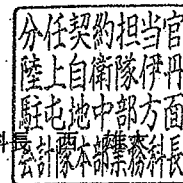 分任契約担当官
陸上自衛隊伊丹
駐屯地中部方面
会計隊本部業務科長
科長 西